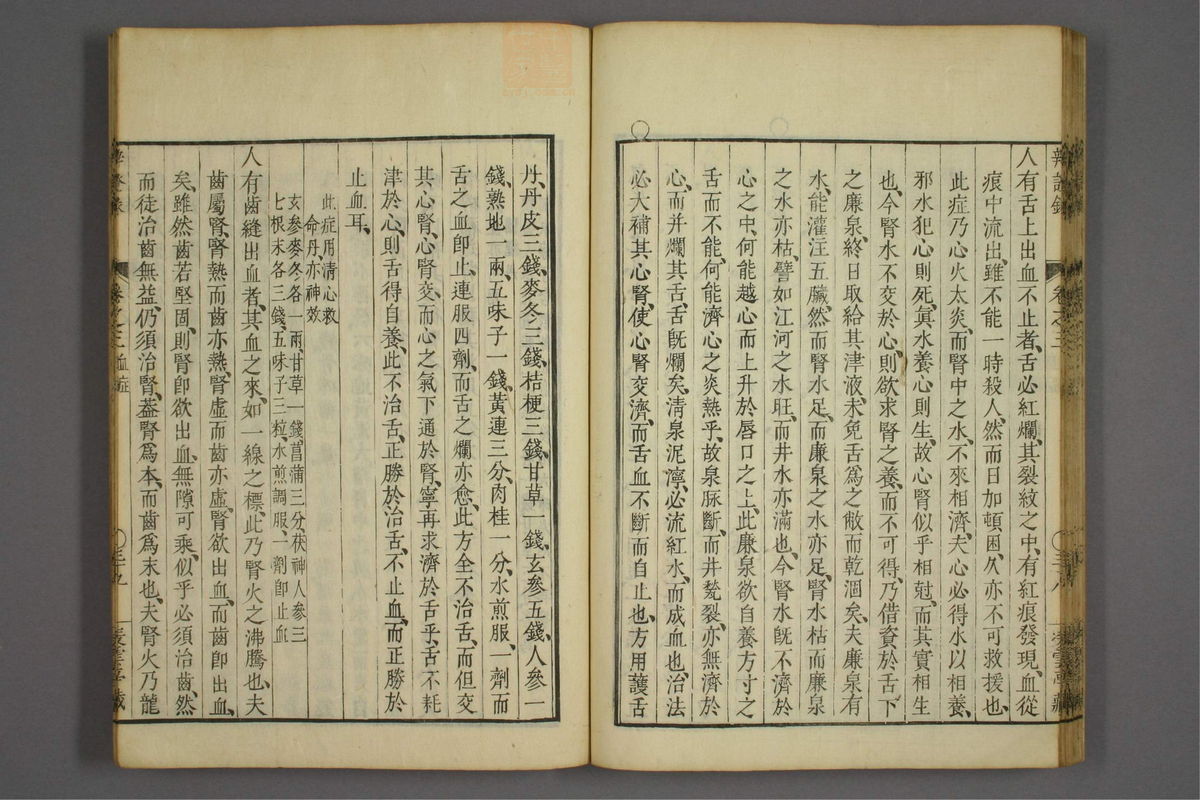 人有舌上出血不止者、舌必紅爛、其裂紋之中、有紅痕發現、血從
痕中流出、雖不能一時殺人、然而日加頓困、久亦不可救援也、
此症乃心火太炎、而腎中之水、不來相濟、夫心必得水以相養、
邪水犯心則死、眞水養心則生、故心腎似乎相尅、而其實相生
也、今腎水不交於心、則欲求腎之養、而不可得、乃借資於舌下
之廉泉、終日取給其津液、未免舌爲之敝而乾涸矣、夫廉泉有
水、能灌注五臟、然而腎水足、而廉泉之水亦足、腎水枯而廉泉
之水亦枯、譬如江河之水旺、而井水亦滿也、今腎水旣不濟於
心之中、何能越心而上升於唇口之上、此廉泉欲自養方寸之
舌而不能、何能濟心之炎熱乎、故泉脉斷、而井甃裂、亦無濟於
心、而并爛其舌、舌旣爛矣、清泉泥濘、必流紅水、而成血也、治法
必大補其心腎、使心腎交濟、而舌血不斷而自止也、方用護舌
丹、丹皮三錢、麥冬三錢、桔梗三錢、甘草一錢、玄參五錢、人參一
錢、熟地一兩、五味子一錢、黃連三分、肉桂一分、水煎服、一劑而
舌之血卽止、連服四劑、而舌之爛亦愈、此方全不治舌、而但交
其心腎、心腎交、而心之氣下通於腎、寧再求濟於舌乎、舌不耗
津於心、則舌得自養、此不治舌、正勝於治舌、不止血、而正勝於
止血耳、
此症用清心救
命丹、亦神效
玄參麥冬各一兩、甘草一錢、菖蒲三分、茯神人參三
七根末各三錢、五味子三粒、水煎調服、一劑卽止血
人有齒縫出血者、其血之來、如一線之標、此乃腎火之沸騰也、夫
齒屬腎、腎熱而齒亦熱、腎虛而齒亦虛、腎欲出血、而齒卽出血
矣、雖然齒若堅固、則腎卽欲出血、無隙可乘、似乎必須治齒、然
而徒治齒無益、仍須治腎、葢腎爲本、而齒爲末也、夫腎火乃龍
辨證錄
卷之三
血症
三十九